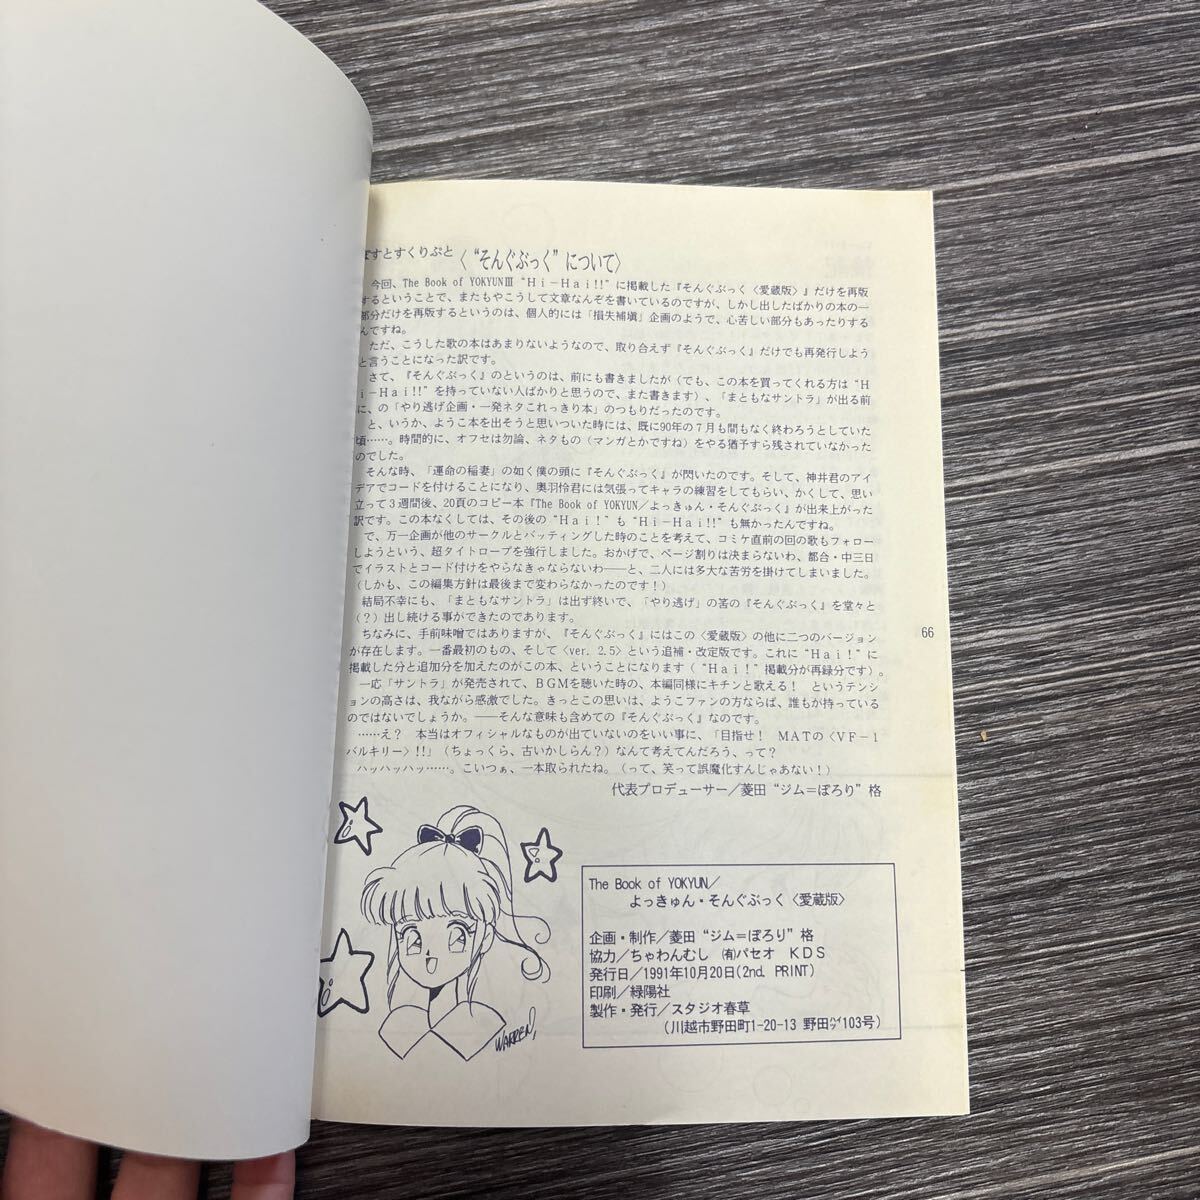 ぽすとすくりぷと〈“そんぐぶっく”について〉
今回、The Book of YOKYUNⅢ “Hi－Hai!!”に掲載した『そんぐぶっく〈愛蔵版〉』だけを再版
するということで、またもやこうして文章なんぞを書いているのですが、しかし出したばかりの本の一
部分だけを再版するというのは、個人的には「損失補填」企画のようで、心苦しい部分もあったりする
んですね。
ただ、こうした歌の本はあまりないようなので、取り合えず『そんぐぶっく』だけでも再発行しよう
と言うことになった訳です。
さて、『そんぐぶっく』のというのは、前にも書きましたが（でも、この本を買ってくれる方は“H
i－Hai!!”を持っていない人ばかりと思うので、また書きます）、「まともなサントラ」が出る前
に、の「やり逃げ企画・一発ネタこれっきり本」のつもりだったのです。
と、いうか、ようこ本を出そうと思いついた時には、既に90年の７月も間もなく終わろうとしていた
頃……。時間的に、オフセは勿論、ネタもの（マンガとかですね）をやる猶予すら残されていなかった
のでした。
そんな時、「運命の稲妻」の如く僕の頭に『そんぐぶっく』が閃いたのです。そして、神井君のアイ
デアでコードを付けることになり、奥羽怜君には気張ってキャラの練習をしてもらい、かくして、思い
立って３週間後、20頁のコピー本『The Book of YOKYUN／よっきゅん・そんぐぶっく』が出来上がった
訳です。この本なくしては、その後の“Hai!”も“Hi－Hai!!”も無かったんですね。
で、万一企画が他のサークルとバッティングした時のことを考えて、コミケ直前の回の歌もフォロー
しようという、超タイトロープを強行しました。おかげで、ページ割りは決まらないわ、都合・中三日
でイラストとコード付けをやらなきゃならないわ――と、二人には多大な苦労を掛けてしまいました。
（しかも、この編集方針は最後まで変わらなかったのです！）
結局不幸にも、「まともなサントラ」は出ず終いで、「やり逃げ」の筈の『そんぐぶっく』を堂々と
（？）出し続ける事ができたのであります。
ちなみに、手前味噌ではありますが、『そんぐぶっく』にはこの〈愛蔵版〉の他に二つのバージョン
が存在します。一番最初のもの、そして〈ver. 2.5〉という追補・改定版です。これに“Hai!”に
掲載した分と追加分を加えたのがこの本、ということになります（“Hai!”掲載分が再録分です）。
一応「サントラ」が発売されて、ＢＧＭを聴いた時の、本編同様にキチンと歌える！　というテンシ
ョンの高さは、我ながら感激でした。きっとこの思いは、ようこファンの方ならば、誰もが持っている
のではないでしょうか。――そんな意味も含めての『そんぐぶっく』なのです。
……え？　本当はオフィシャルなものが出ていないのをいい事に、「目指せ！　ＭＡＴの〈ＶＦ－１
バルキリー〉!!」（ちょっくら、古いかしらん？）なんて考えてんだろう、って？
ハッハッハッ……。こいつぁ、一本取られたね。（って、笑って誤魔化すんじゃあない！）
代表プロデューサー／菱田“ジム＝ぽろり”格
66
WARREN,
The Book of YOKYUN／
よっきゅん・そんぐぶっく〈愛蔵版〉
企画・制作／菱田“ジム＝ぽろり”格
協力／ちゃわんむし ㈲パセオ ＫＤＳ
発行日／1991年10月20日(2nd. PRINT)
印刷／緑陽社
製作・発行／スタジオ春草
（川越市野田町1-20-13 野田ﾊｲﾂ103号）